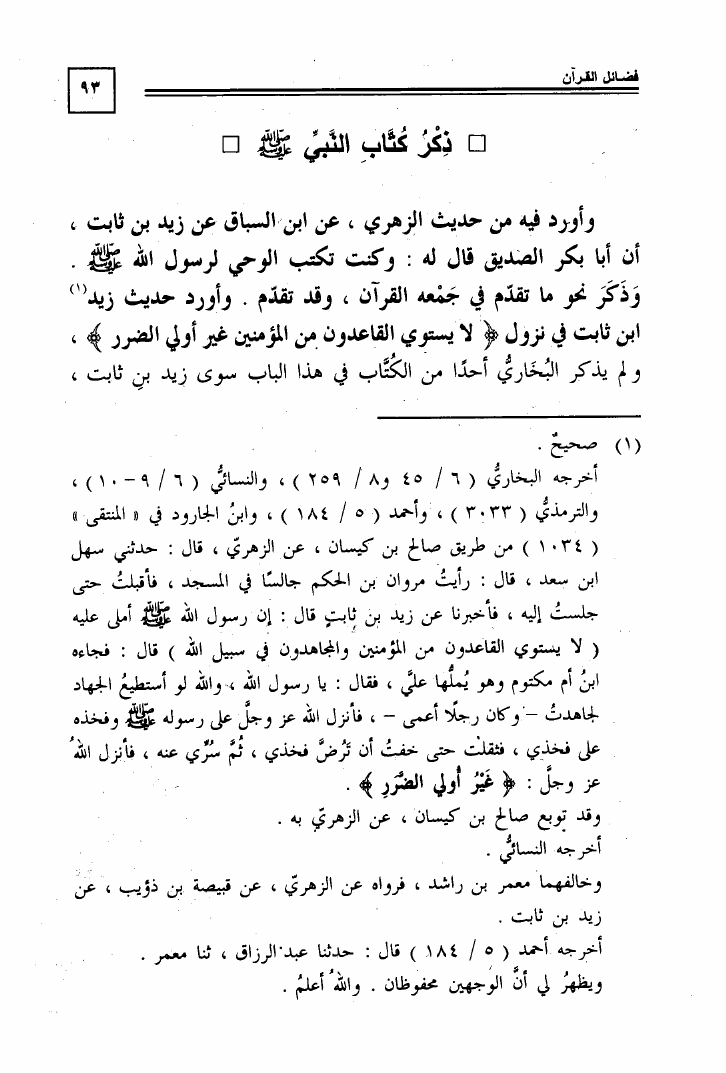 فضائل القرآن
٩٣
□ ذِكْرُ كُتَّابِ النَّبِيِّ ﷺ □
وأورد فيه من حديث الزهري ، عن ابن السباق عن زيد بن ثابت ،
أن أبا بكر الصديق قال له : وكنت تكتب الوحي لرسول الله ﷺ .
وَذَكَرَ نحو ما تقدّم في جَمْعه القرآن ، وقد تقدّم . وأورد حديث زيد(١)
ابن ثابت في نزول ﴿ لا يستوي القاعدون من المؤمنين غير أولي الضرر ﴾ ،
ولم يذكر البُخَاريُّ أحدًا من الكُتَّاب في هذا الباب سوى زيد بنِ ثابت ،
(١) صحيحٌ .
أخرجه البخاريُّ ( ٦ / ٤٥ و٨ / ٢٥٩ ) ، والنسائيُّ ( ٦ / ٩ - ١٠ ) ،
والترمذيُّ ( ٣٠٣٣ ) ، وأحمد ( ٥ / ١٨٤ ) ، وابنُ الجارود في « المنتقى »
( ١٠٣٤ ) من طريق صالح بن كيسان ، عن الزهريّ ، قال : حدثني سهل
ابن سعد ، قال : رأيتُ مروان بن الحكم جالسًا في المسجد ، فأقبلتُ حتى
جلستُ إليه ، فأخبرنا عن زيد بن ثابتٍ قال : إن رسول الله ﷺ أملى عليه
( لا يستوي القاعدون من المؤمنين والمجاهدون في سبيل الله ) قال : فجاءه
ابنُ أم مكتوم وهو يُملُّها عليَّ ، فقال : يا رسول الله ، والله لو أستطيعُ الجهاد
لجاهدتُ - وكان رجلًا أعمى - ، فأنزل الله عز وجلَّ على رسوله ﷺ وفخذه
على فخذي ، فثقلت حتى خفتُ أن تَرُضَّ فخذي ، ثُمَّ سُرِّي عنه ، فأنزل اللهُ
عز وجلَّ : ﴿ غَيْرُ أُولي الضَّرَرِ ﴾ .
وقد توبع صالح بن كيسان ، عن الزهريّ به .
أخرجه النسائيُّ .
وخالفهما معمر بن راشد ، فرواه عن الزهريّ ، عن قبيصة بن ذؤيب ، عن
زيد بن ثابت .
أخرجه أحمد ( ٥ / ١٨٤ ) قال : حدثنا عبد الرزاق ، ثنا معمر .
ويظهرُ لي أنَّ الوجهين محفوظان . واللهُ أعلمُ .